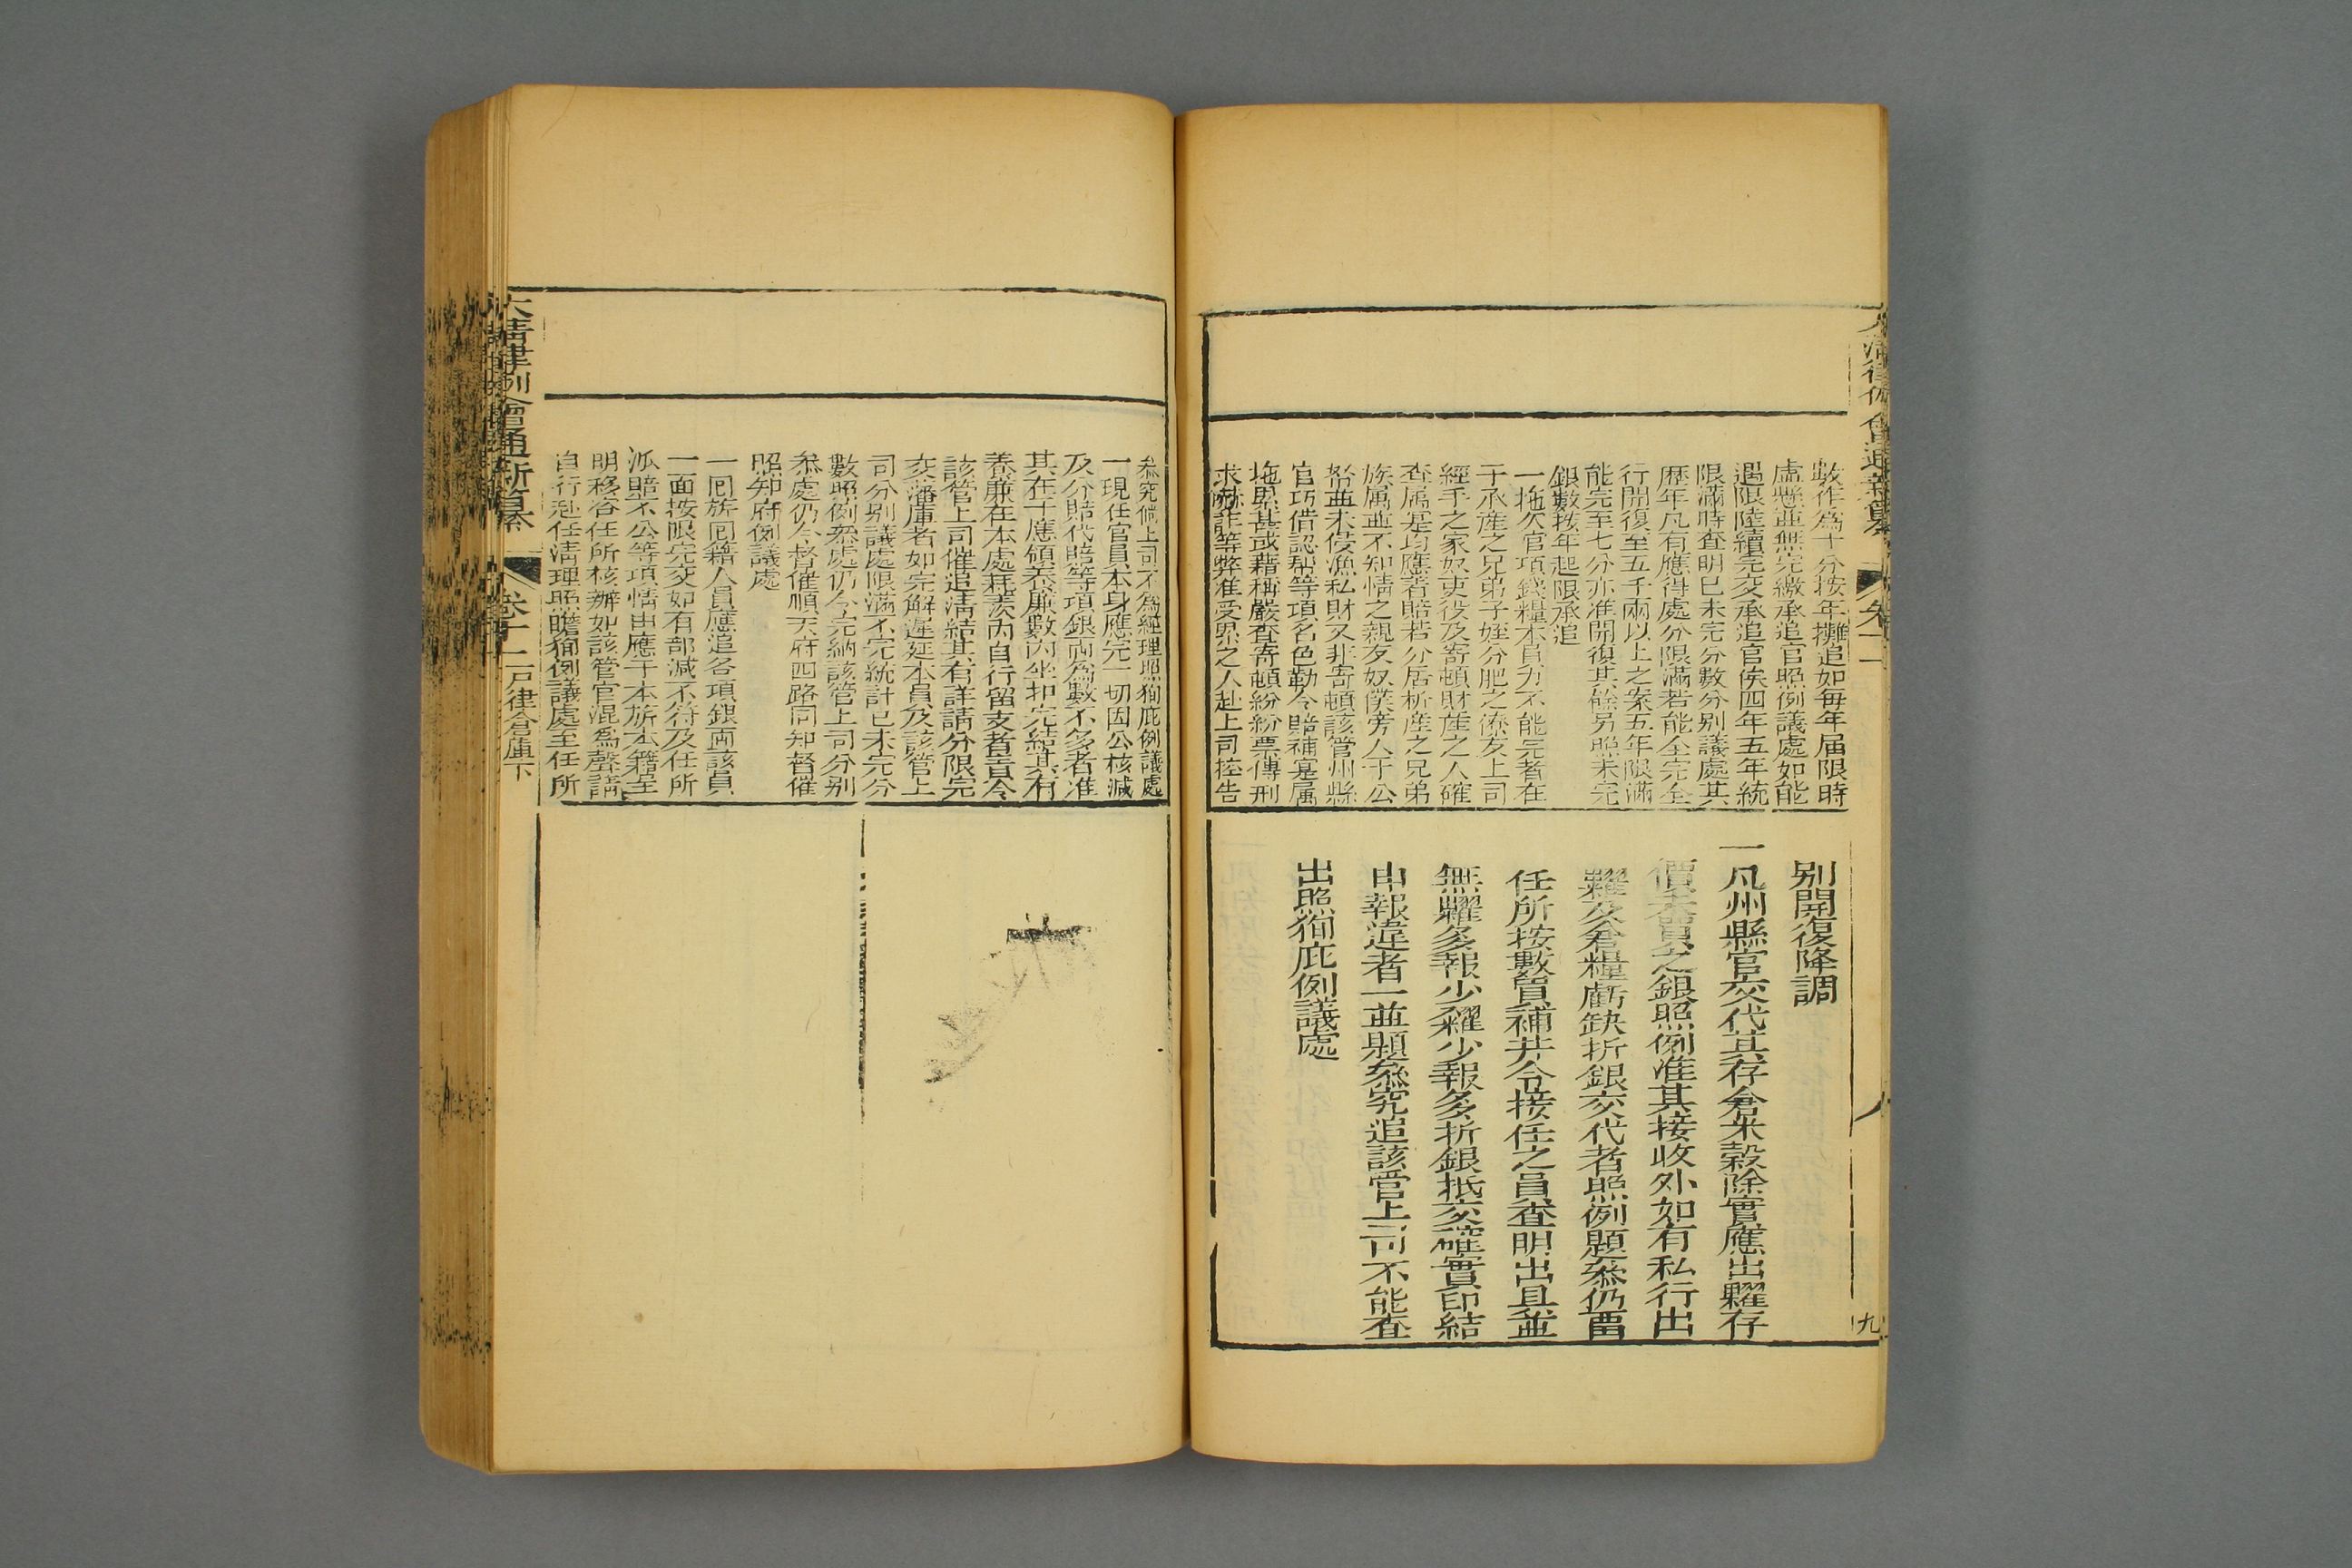 數作爲十分按年攤追如每年届限時
虛懸並無完繳承追官照例議處如能
遇限陸續完交承追官俟四年五年統
限滿時查明已未完分數分别議處其
歴年凡有應得處分限滿若能全完全
行開復至五千兩以上之案五年限滿
能完至七分亦准開復其餘另照未完
銀數按年起限承追
一拖欠官項錢糧本員力不能完者在
于承產之兄弟子姪分肥之僚友上司
經手之家奴吏役及寄頓財產之人確
查属寔均應著賠若分居析產之兄弟
族属並不知情之親友奴僕旁人于公
帑並未侵漁私財又非寄頓該管州縣
官巧借認帮等項名色勒令賠補寔属
拖累甚或藉稱嚴查寄頓紛紛票傳刑
求赫詐等弊准受累之人赴上司控告
别開復降調
一凡州縣官交代其存倉米穀除實應出糶存
價未買之銀照例准其接收外如有私行出
糶及倉糧虧缺折銀交代者照例題叅仍畱
任所按數買補并令接任之員查明出具並
無糶多報少糴少報多折銀抵交確實印結
申報違者一並題叅究追該管上司不能查
出照狥庇例議處
大清律例會通新纂
卷十一
九
叅究倘上司不爲經理照狥庇例議處
一現任官員本身應完一切因公核減
及分賠代賠等項銀兩爲數不多者准
其在于應領養廉數內坐扣完結其有
養廉在本處耗羨內自行留支者責令
該管上司催追清結其有詳請分限完
交藩庫者如完解遲延本員及該管上
司分别議處限滿不完統計已未完分
數照例叅處仍令完納該管上司分别
叅處仍令督催順天府四路同知督催
照知府例議處
一囘旂囘籍人員應追各項銀兩該員
一面按限完交如有部減不符及任所
派賠不公等項情由應于本旂本籍呈
明移咨任所核辦如該管官混爲聲請
自行赴任清理照瞻狥例議處至任所
大清律例會通新纂
卷十一
戸律倉庫下